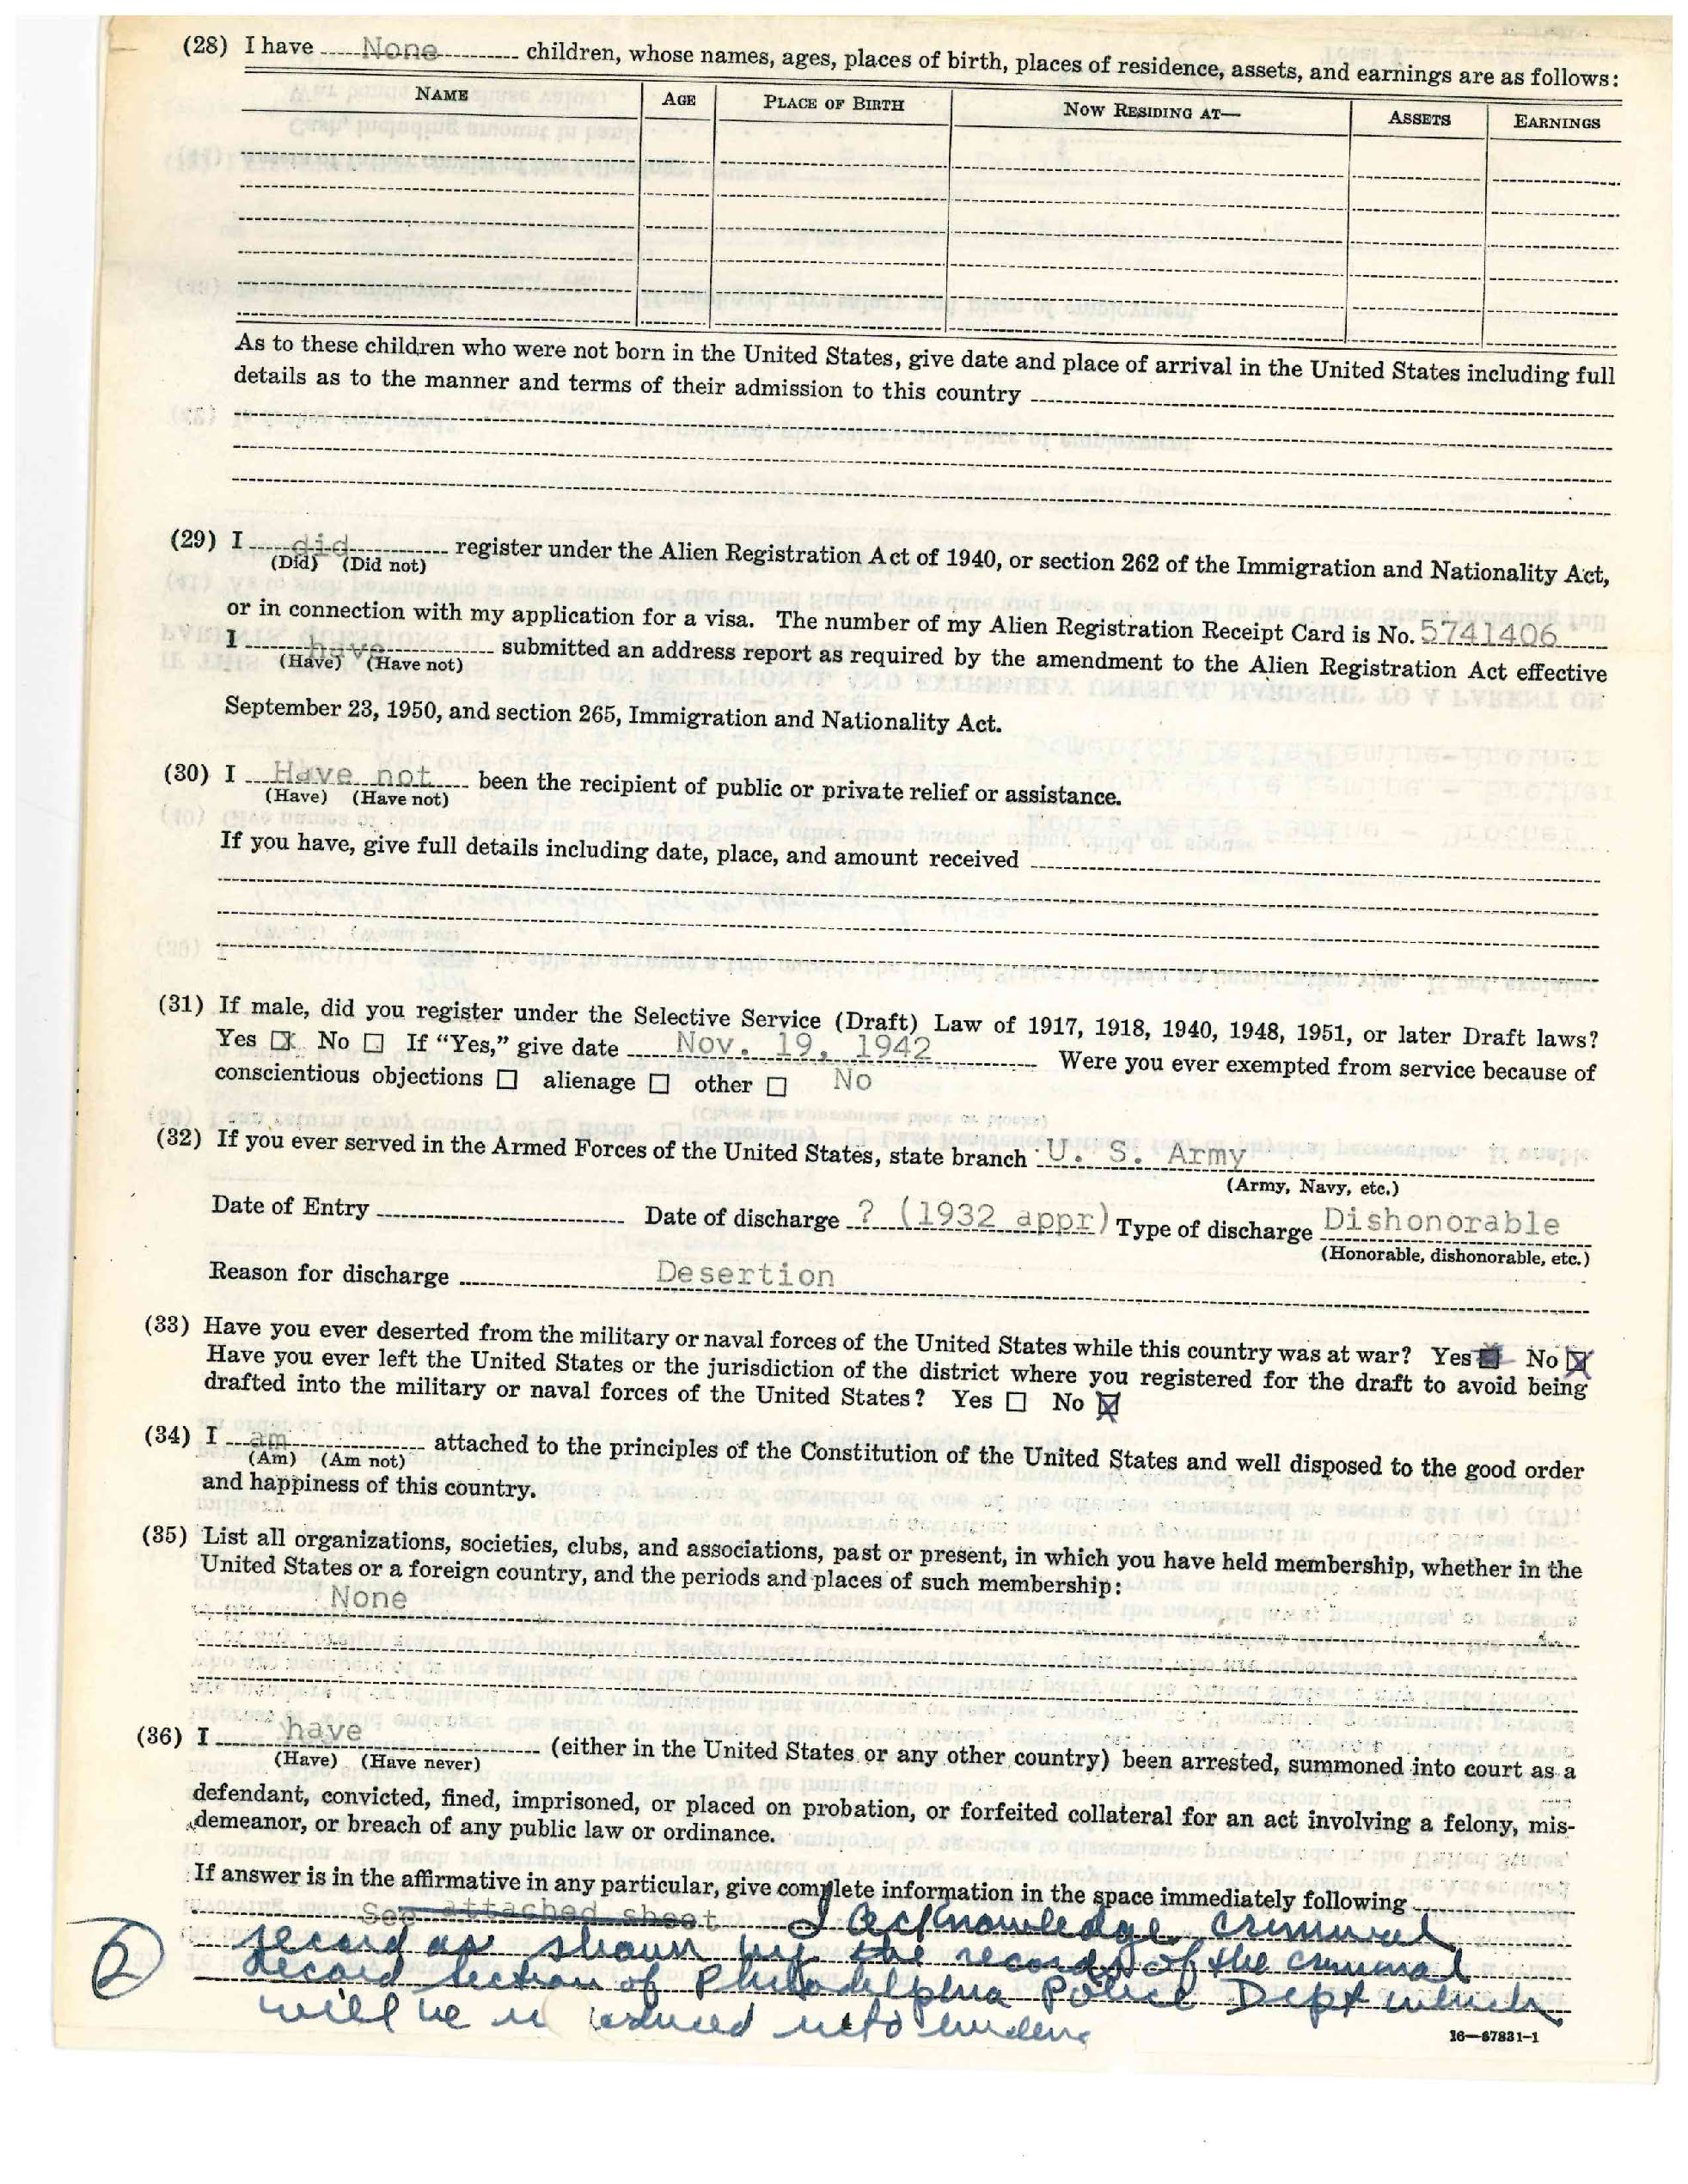 (28) I have None children, whose names, ages, places of birth, places of residence, assets, and earnings are as follows:
NAME AGE PLACE OF BIRTH NOW RESIDING AT— ASSETS EARNINGS
As to these children who were not born in the United States, give date and place of arrival in the United States including full
details as to the manner and terms of their admission to this country
(29) I did register under the Alien Registration Act of 1940, or section 262 of the Immigration and Nationality Act,
(Did) (Did not)
or in connection with my application for a visa. The number of my Alien Registration Receipt Card is No. 5741406
I have submitted an address report as required by the amendment to the Alien Registration Act effective
(Have) (Have not)
September 23, 1950, and section 265, Immigration and Nationality Act.
(30) I Have not been the recipient of public or private relief or assistance.
(Have) (Have not)
If you have, give full details including date, place, and amount received
(31) If male, did you register under the Selective Service (Draft) Law of 1917, 1918, 1940, 1948, 1951, or later Draft laws?
Yes ☒ No ☐ If "Yes," give date Nov. 19, 1942 Were you ever exempted from service because of
conscientious objections ☐ alienage ☐ other ☐ No
(32) If you ever served in the Armed Forces of the United States, state branch U. S. Army
(Army, Navy, etc.)
Date of Entry Date of discharge ? (1932 appr) Type of discharge Dishonorable
(Honorable, dishonorable, etc.)
Reason for discharge Desertion
(33) Have you ever deserted from the military or naval forces of the United States while this country was at war? Yes ☒ No ☒
Have you ever left the United States or the jurisdiction of the district where you registered for the draft to avoid being
drafted into the military or naval forces of the United States? Yes ☐ No ☒
(34) I am attached to the principles of the Constitution of the United States and well disposed to the good order
(Am) (Am not)
and happiness of this country.
(35) List all organizations, societies, clubs, and associations, past or present, in which you have held membership, whether in the
United States or a foreign country, and the periods and places of such membership:
None
(36) I have (either in the United States or any other country) been arrested, summoned into court as a
(Have) (Have never)
defendant, convicted, fined, imprisoned, or placed on probation, or forfeited collateral for an act involving a felony, mis-
demeanor, or breach of any public law or ordinance.
If answer is in the affirmative in any particular, give complete information in the space immediately following
See attached sheet I acknowledge criminal
2 record as shown by the records of the criminal
record section of Philadelphia Police Dept which
will be introduced into evidence
16—67831-1